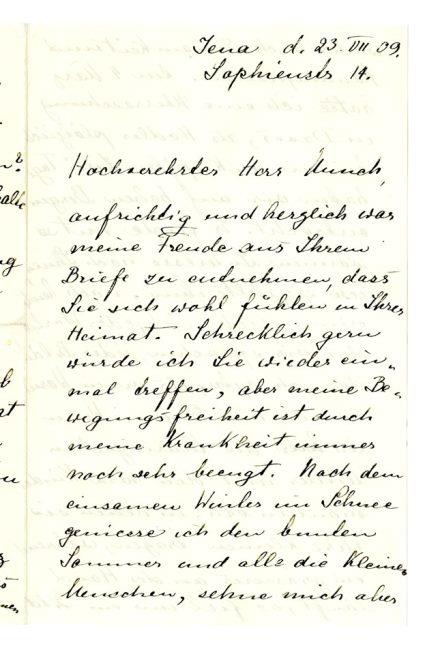 Jena d. 23. VII 09.
Sophienstr 14.
Hochverehrter Herr Munch,
aufrichtig und herzlich war
meine Freude aus Ihrem
Briefe zu entnehmen, dass
Sie sich wohl fühlen in Ihrer
Heimat. Schrecklich gern
würde ich Sie wieder ein-
mal treffen, aber meine Be-
wegungsfreiheit ist durch
meine Krankheit immer
noch sehr beengt. Nach dem
einsamen Winter im Schnee
geniesse ich den bunten
Sommer und alle die kleinen
Menschen, sehne mich aber